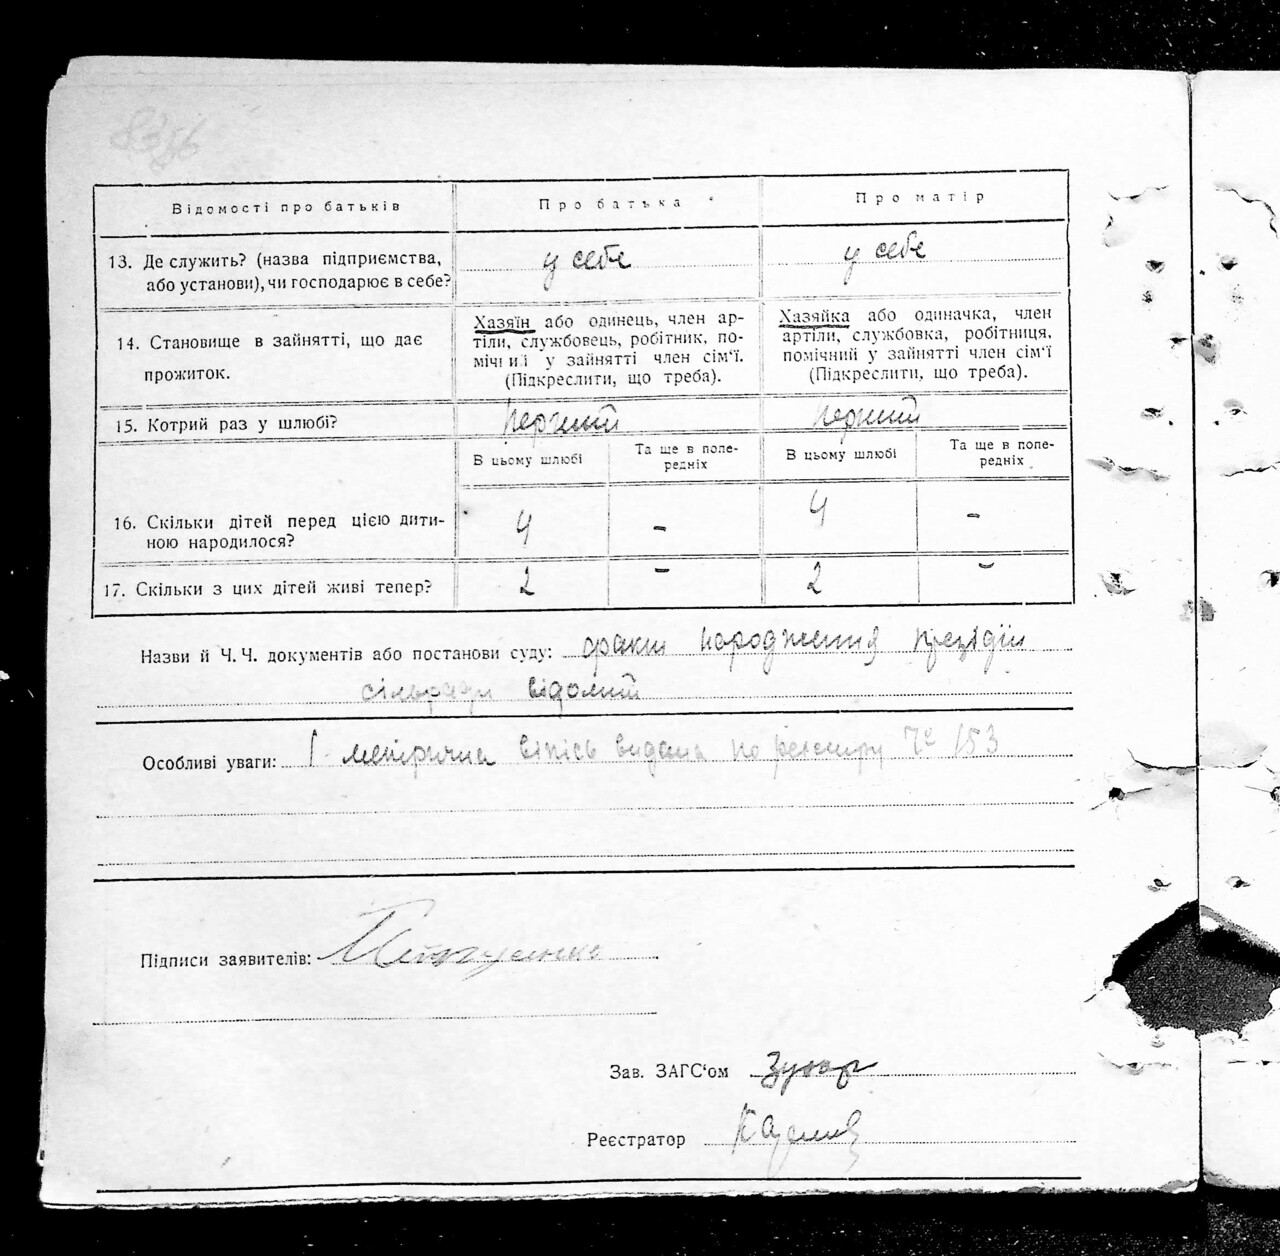 Відомості про батьків
Про батька
Про матір
13. Де служить? (назва підприємства, або установи), чи господарює в себе?
у себе
у себе
14. Становище в зайнятті, що дає прожиток.
Хазяїн або одинець, член ар-
тіли, службовець, робітник, по-
мічний у зайнятті член сім‘ї.
(Підкреслити, що треба).
Хазяйка або одиначка, член
артіли, службовка, робітниця,
помічний у зайнятті член сім‘ї
(Підкреслити, що треба).
15. Котрий раз у шлюбі?
первий
первий
В цьому шлюбі
Та ще в попе-
редніх
В цьому шлюбі
Та ще в попе-
редніх.
16. Скільки дітей перед цією дити-
ною народилося?
4 - 4 -
17. Скільки з цих дітей живі тепер?
2 - 2 -
Назви й Ч. Ч. документів або постанови суду: факт народження президії
сільради відомий
Особливі уваги: метрична випись видана по реєстру № 153
Підписи заявителів:
Зав. ЗАГС‘ом
Реєстратор